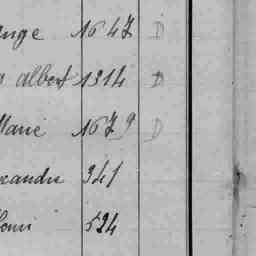 ange 1647 D
albert 1314 D
Marie 1679 D
xandre 341
Louis 524